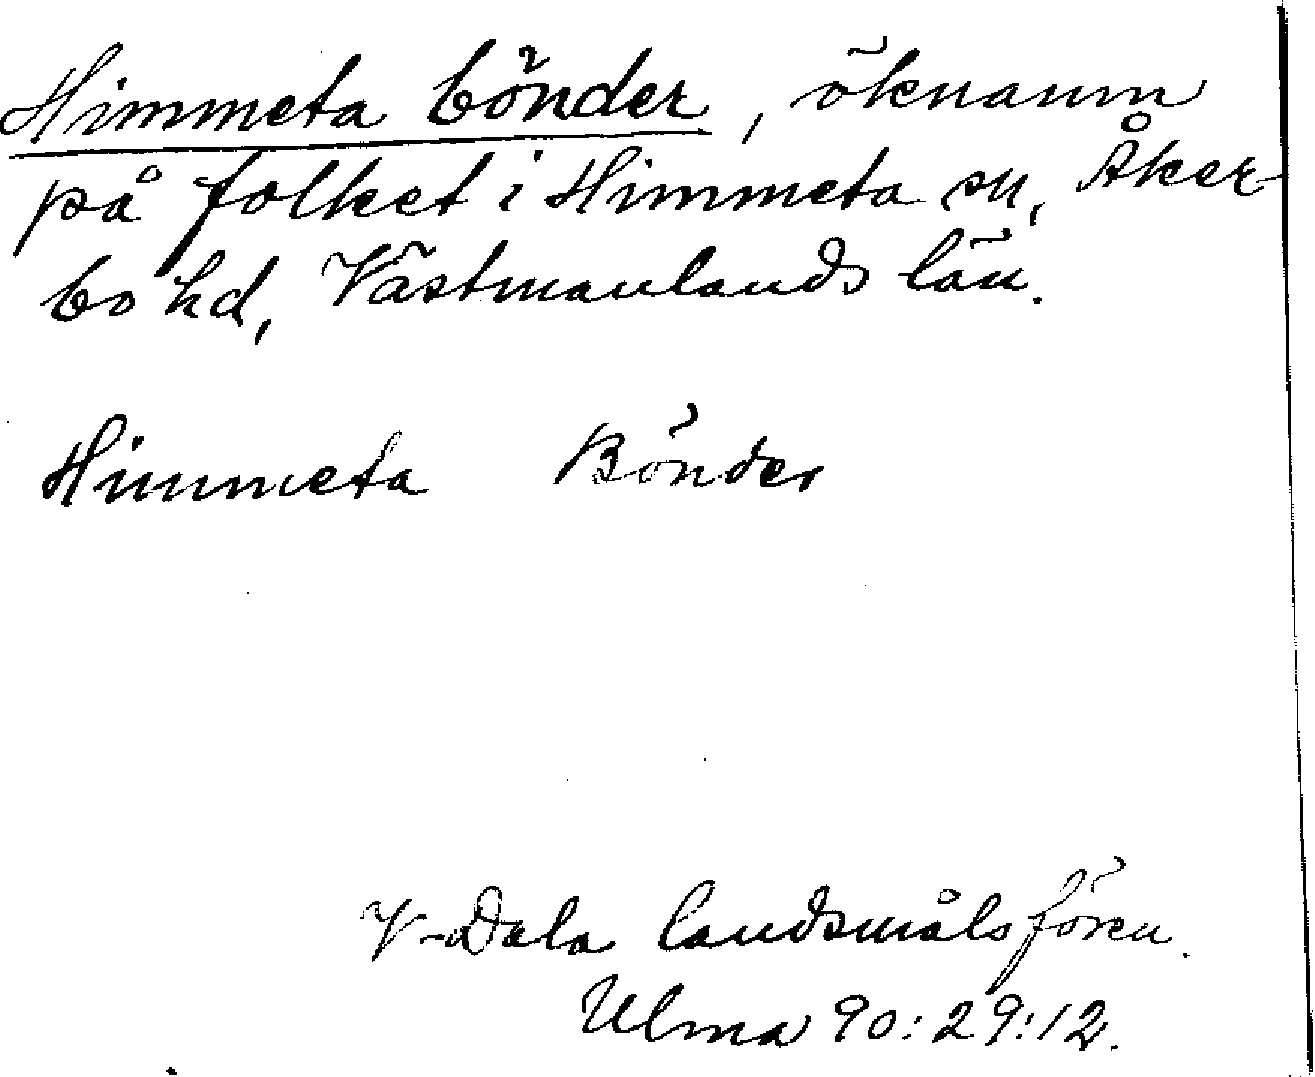 Himmeta bönder, öknamn
på folket i Himmeta sn, Åker-
bo hd, Västmanlands län.
Himmeta Bönder
V-Dala landsmålsfören.
Ulma 90:29:12.